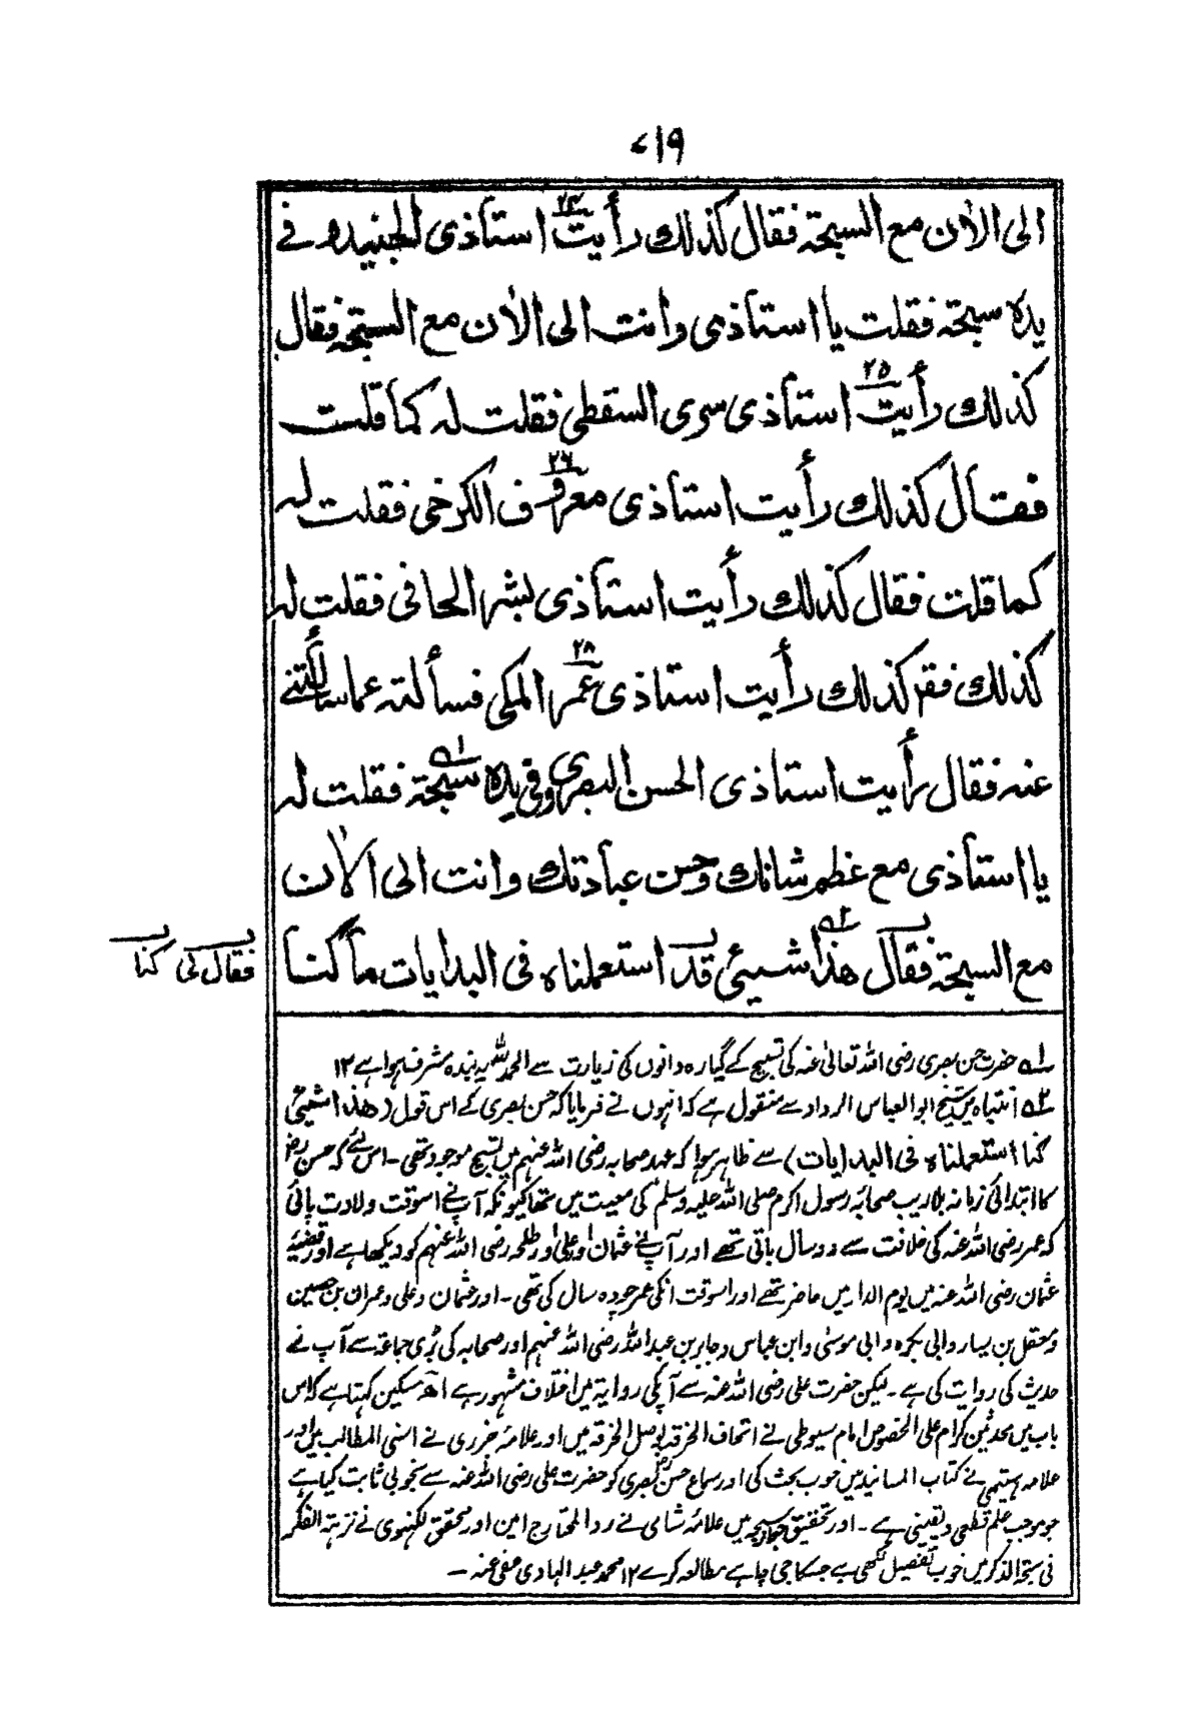 ۷۱۹
الی الاٰن مع السبحۃ فقال کذلک رأیت ۲۴ استاذی الجنید و فے
یدہ سبحۃ فقلت یا استاذی وانت الی الاٰن مع السبحۃ فقال
کذلک رأیت ۲۵ استاذی سری السقطی فقلت لہ کما قلت
فقال کذلک رأیت استاذی معروف ۲۶ الکرخی فقلت لہ
کما قلت فقال کذلک رأیت استاذی بشر الحافی فقلت لہ
کذلک فقر کذلک رأیت استاذی عمر ۲۸ المکی فسألتہ عما سألتنے
عنہ فقال رأیت استاذی الحسن البصری وفی یدہ سبحۃ ۱ے فقلت لہ
یا استاذی مع عظم شانک وحسن عبادتک وانت الی الاٰن
مع السبحۃ فقال ھذا ۲ے شیئ قد استعملناہ فی البدایات ماکنا
فقال لی کنا
۱ے حضرت حسن بصری رضی اللہ تعالیٰ عنہ کی تسبیح کے گیارہ دانوں کی زیارت سے الحمد للہ یہ بندہ مشرف ہوا ہے ۱۲
۲ے انتباہ میں شیخ ابو العباس الرداد سے منقول ہے کہ انہوں نے فرمایا کہ حسن بصری کے اس قول (ھذا شیئ
کنا استعملناہ فی البدایات) سے ظاہر ہوا کہ عہد صحابہ رضی اللہ عنہم میں تسبیح موجود تھی۔ اس لئے کہ حسن رضؓ
کا ابتدائی زمانہ بلاریب صحابۂ رسول اکرم صلی اللہ علیہ وسلم کی معیت میں تھا کیونکہ آپ نے اسوقت ولادت پائی
کہ عمر رضی اللہ عنہ کی خلافت سے دو سال باقی تھے اور آپ نے عثمان و علی اور طلحہ رضی اللہ عنہم کو دیکھا ہے اور قضیۂ
عثمان رضی اللہ عنہ میں یوم الدار میں حاضر تھے اور اسوقت انکی عمر چودہ سال کی تھی۔ اور عثمان و علی و عمران بن حصین
و معقل بن یسار و ابی بکرہ و ابی موسیٰ و ابن عباس و جابر بن عبد اللہ رضی اللہ عنہم اور صحابہ کی بڑی جماعۃ سے آپ نے
حدیث کی روایت کی ہے۔ لیکن حضرت علی رضی اللہ عنہ سے آپ کی روایۃ میں اختلاف مشہور ہے اھ مسکین کہتا ہے کہ اس
باب میں محدثین کرام علی الخصوص امام سیوطی نے اتحاف الخرقۃ بوصل الخرقہ میں اور علامہ جزری نے اسنی المطالب میں اور
علامہ ہیتمی نے کتاب المسانید میں خوب بحث کی اور سماع حسن بصری کو حضرت علی رضی اللہ عنہ سے بخوبی ثابت کیا ہے
جو موجب علم قطعی و یقینی ہے۔ اور تحقیق جواز سبحہ میں علامہ شامی نے رد المحتار ج امین اور محقق لکھنوی نے نزہۃ الفکر
فی سبحۃ الذکر میں خوب تفصیل لکھی ہے جسکا جی چاہے مطالعہ کرے ۱۲ محمد عبد الہادی عفی عنہ ۔